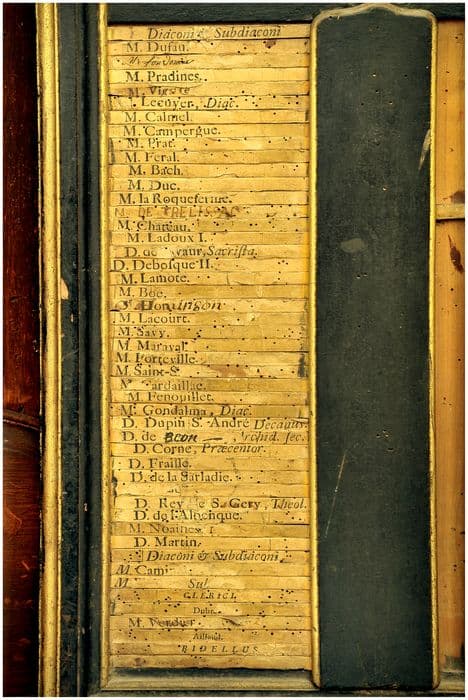 Diaconi & Subdiaconi
M. Dufau.
M. Pradines.
M.
Lecuyer, Diac.
M. Calmel.
M. Campergue.
M. Prat.
M. Feral.
M. Bach.
M. Duc.
M. la Roquefertue.
M. DE TRELISSAC
M. Chateau.
M. Ladoux I.
D. de vaur, Sacrista.
D. Debosque II.
M. Lamote.
M. Böe.
M. Lacourt.
M. Savy.
M. Maraval
M. Porteville.
M. Saint-S
M ardaillac.
M. Fenopillet.
M. Gondalma, Diac.
D. Dupin S. André Decanus.
D. de rchid. sec.
D. Corne, Præcentor.
D. Fraisse.
D. de la Sarladie.
D. Rey e S. Gery, Theol.
D. de l'Albenque.
M. Noalhes. I
D. Martin.
Diaconi & Subdiaconi
M. Cami
M. Sul
CLERICI.
Dubr
M. Verdier
Aillaud.
BIDELLUS